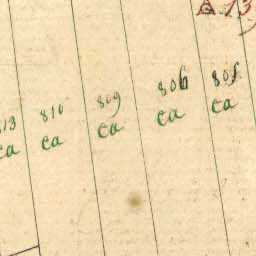 A 13
813 810 809 806 805
ca ca ca ca ca